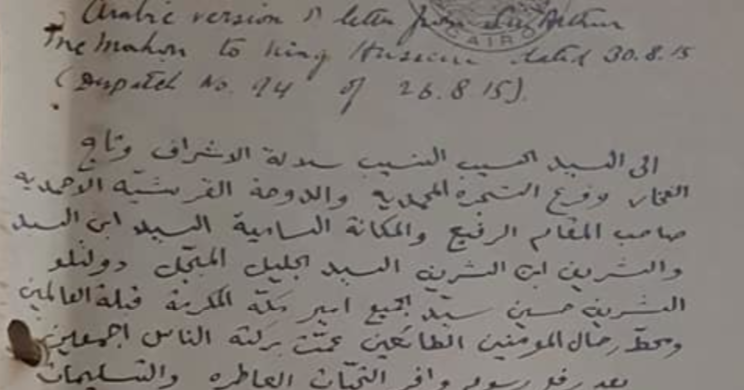 Arabic version of letter from Sir Arthur
McMahon to King Hussein dated 30.8.15
(Dispatch No. 94 of 26.8.15).
CAIRO
الى السيد الحسيب النسيب سلالة الاشراف وتاج
الفخار وفرع الشجرة المحمديه والدوحة القرشيّة الاحمديه
صاحب المقام الرفيع والمكانة السامية السيد ابن السيد
والشريف ابن الشريف السيد الجليل المبجّل دولتلو
الشريف حسين سيّد الجميع امير مكة المكرمة قبلة العالمين
ومحطّ رحال المومنين الطائعين عمّت بركته الناس اجمعين
بعد رفع رسوم وافر التحيّات العاطره والتسليمات